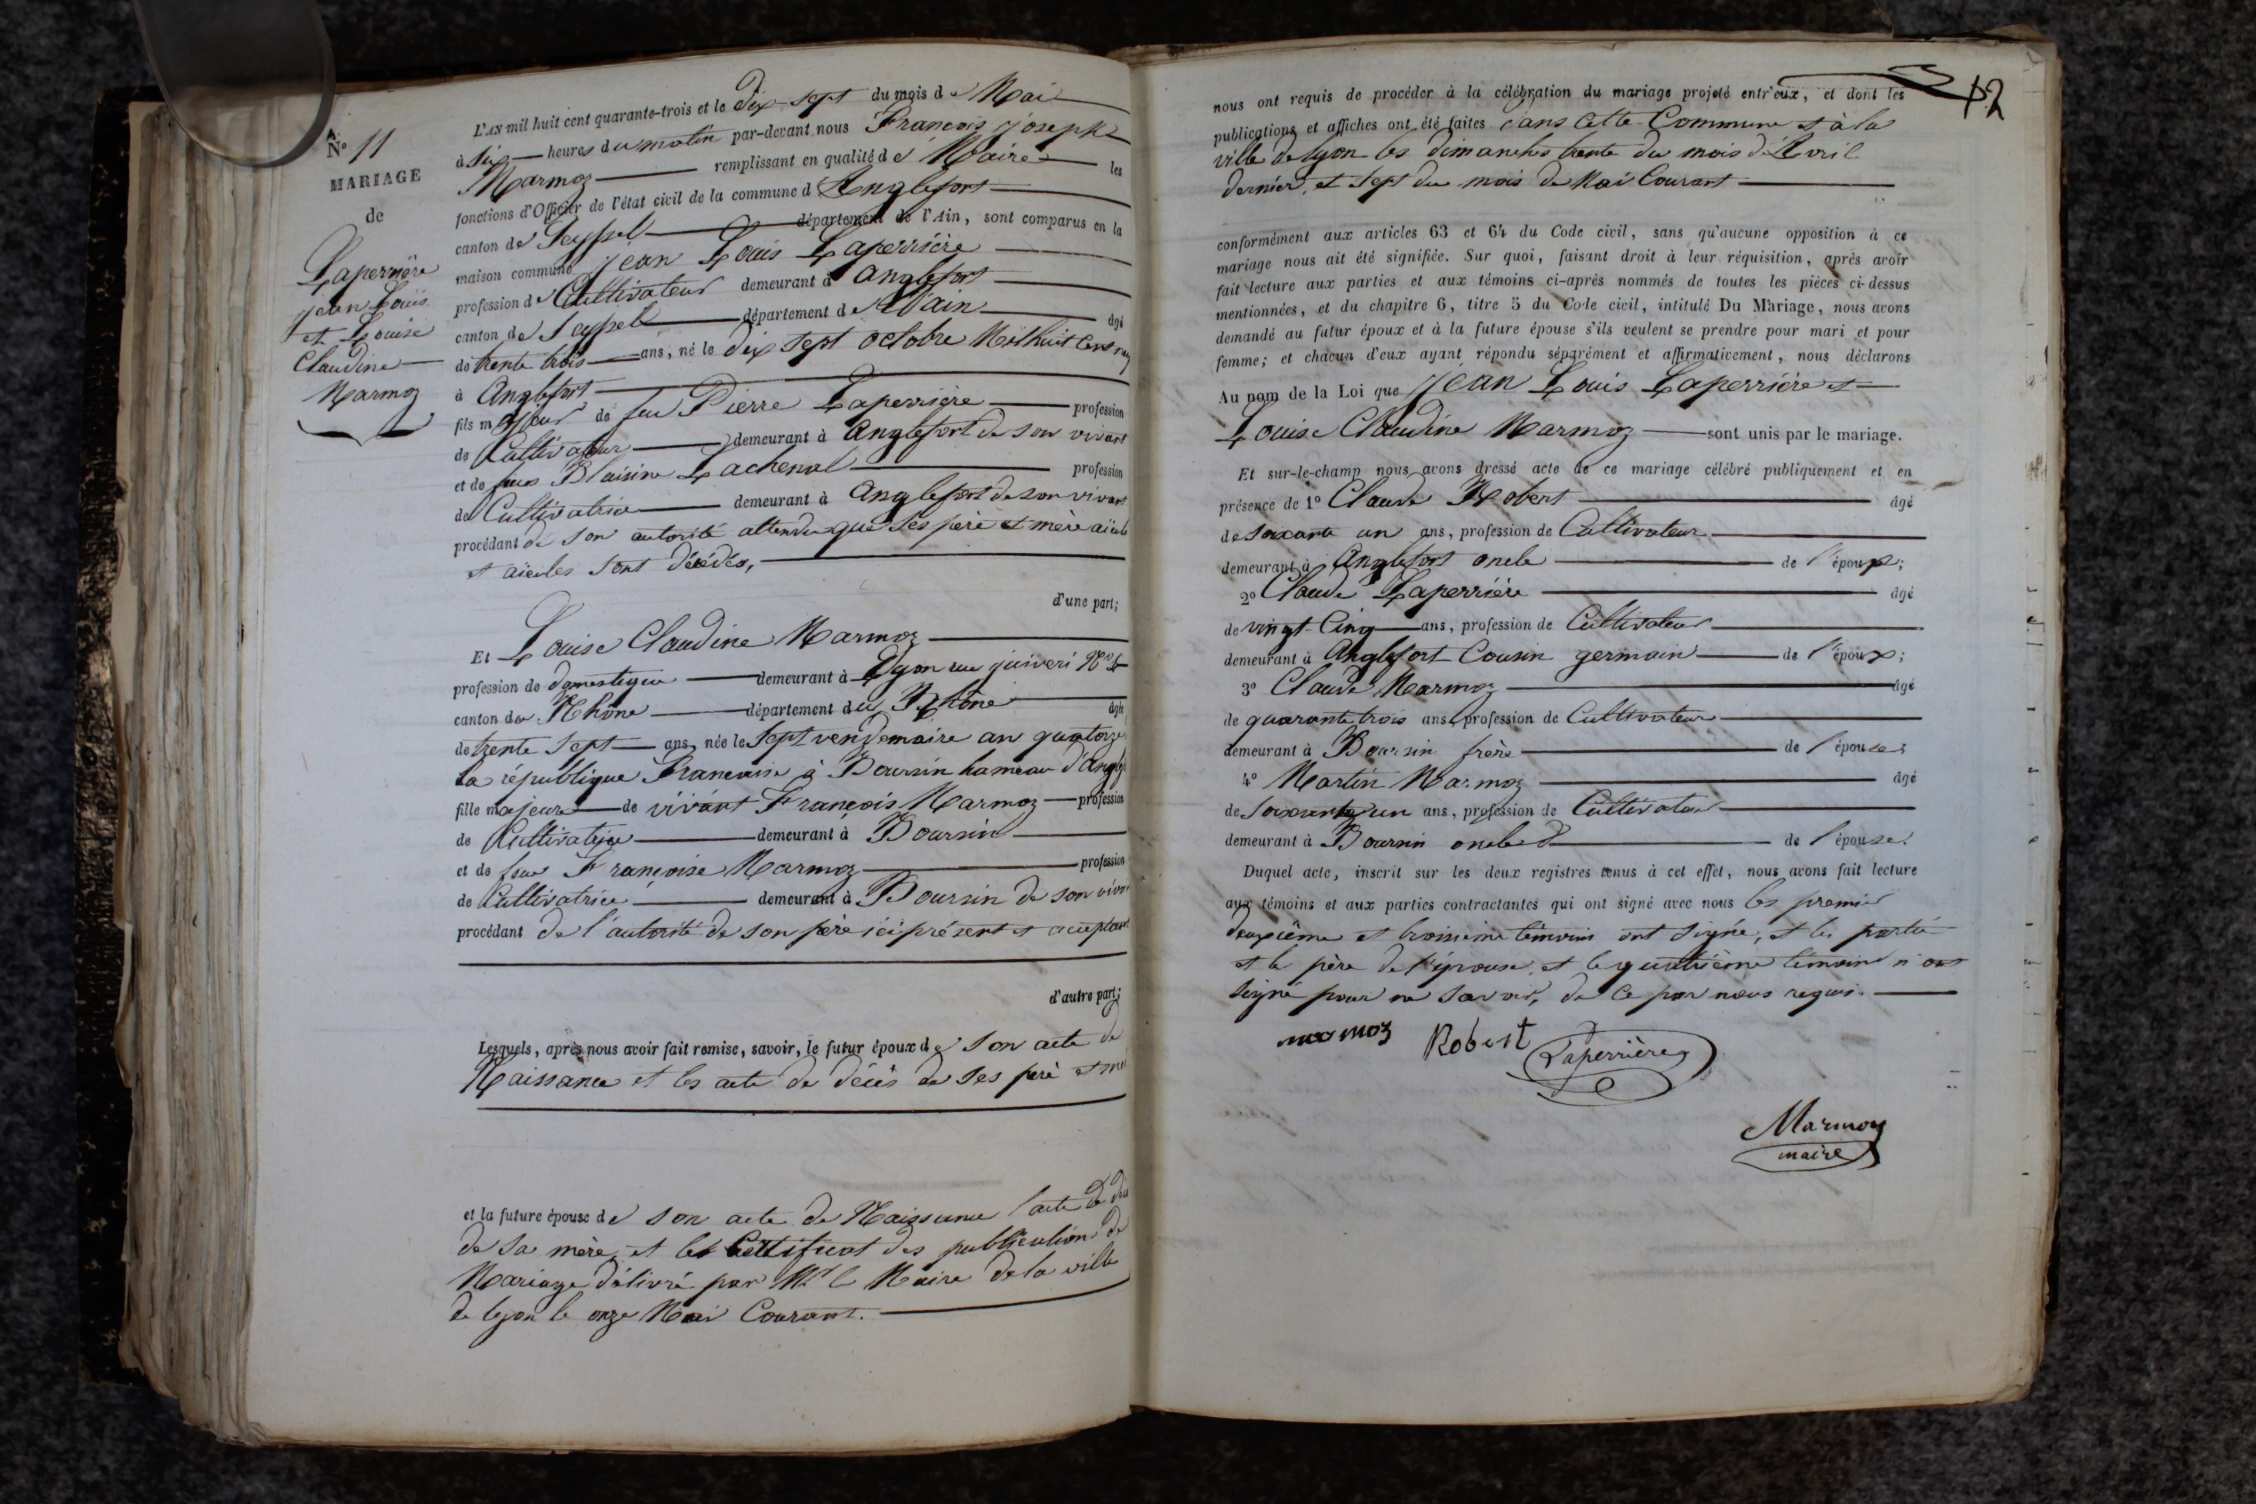 N.° 11
MARIAGE
de
Laperrière
jean Louis
et Louise
Claudine
Marmoz
L'AN mil huit cent quarante-trois et le dix-sept du mois de Mai
à six heures du matin par-devant nous François joseph
Marmoz remplissant en qualité de Maire les
fonctions d'Officier de l'état civil de la commune d'Anglefort
canton de Seyssel département de l'Ain, sont comparus en la
maison commune jean Louis Laperrière
profession de Cultivateur demeurant à anglefort
canton de Seyssel département de l'ain âgé
de trente trois ans, né le dix sept octobre Mil huit Cent neuf
à Anglefort
fils majeur de feu Pierre Laperrière profession
de Cultivateur demeurant à anglefort de son vivant
et de feue Blaisine Lachenal profession
de Cultivatrice demeurant à anglefort de son vivant
procédant de son autorité attendu que ses père et mère aïeuls
et aïeules sont décédés,
d'une part;
Et Louise Claudine Marmoz
profession de domestique demeurant à Lyon rue juiveri N°
canton du Rhône département du Rhône âgée
de trente sept ans, née le sept vendemaire an quatorze
la république Francaise à Boursin hameau d'Angle
fille majeure de vivant François Marmoz profession
de Cultivateur demeurant à Boursin
et de feue Françoise Marmoz profession
de Cultivatrice demeurant à Boursin de son viva
procédant de l'autorité de son père ici présent et acceptant
d'autre part;
Lesquels, après nous avoir fait remise, savoir, le futur époux de son acte de
Naissance et les acte de décès de ses père et me
et la future épouse de son acte de Naissance l'acte de déc
de sa mère, et le Certificat des publications de
Mariage délivré par Mr le Maire de la ville
de lyon le onze Mai Courant.
12
nous ont requis de procéder à la célébration du mariage projeté entr'eux, et dont les
publications et affiches ont été faites dans cette Commune et à la
ville de lyon les dimanches trente du mois d'Avril
dernier, et sept du mois de Mai Courant
conformément aux articles 63 et 64 du Code civil, sans qu'aucune opposition à ce
mariage nous ait été signifiée. Sur quoi, faisant droit à leur réquisition, après avoir
fait lecture aux parties et aux témoins ci-après nommés de toutes les pièces ci-dessus
mentionnées, et du chapitre 6, titre 5 du Code civil, intitulé Du Mariage, nous avons
demandé au futur époux et à la future épouse s'ils veulent se prendre pour mari et pour
femme; et chacun d'eux ayant répondu séparément et affirmativement, nous déclarons
Au nom de la Loi que jean Louis Laperrière et
Louise Claudine Marmoz sont unis par le mariage.
Et sur-le-champ nous avons dressé acte de ce mariage célébré publiquement et en
présence de 1° Claude Robert âgé
de soixante un ans, profession de Cultivateur
demeurant à Anglefort oncle de l'époux;
2° Claude Laperrière âgé
de vingt Cinq ans, profession de Cultivateur
demeurant à Anglefort Cousin germain de l'époux;
3° Claude Marmoz âgé
de quarante trois ans, profession de Cultivateur
demeurant à Boursin frère de l'épouse;
4° Martin Marmoz âgé
de soixante un ans, profession de Cultivateur
demeurant à Boursin oncle de l'épouse.
Duquel acte, inscrit sur les deux registres tenus à cet effet, nous avons fait lecture
aux témoins et aux parties contractantes qui ont signé avec nous les premier
deuxième et troisième témoins ont signé, et les partie
et le père de l'épouse, et le quatrième témoin n'ont
signé pour ne savoir, de ce par nous requis.
marmoz Robert Laperrière
Marmoz
maire